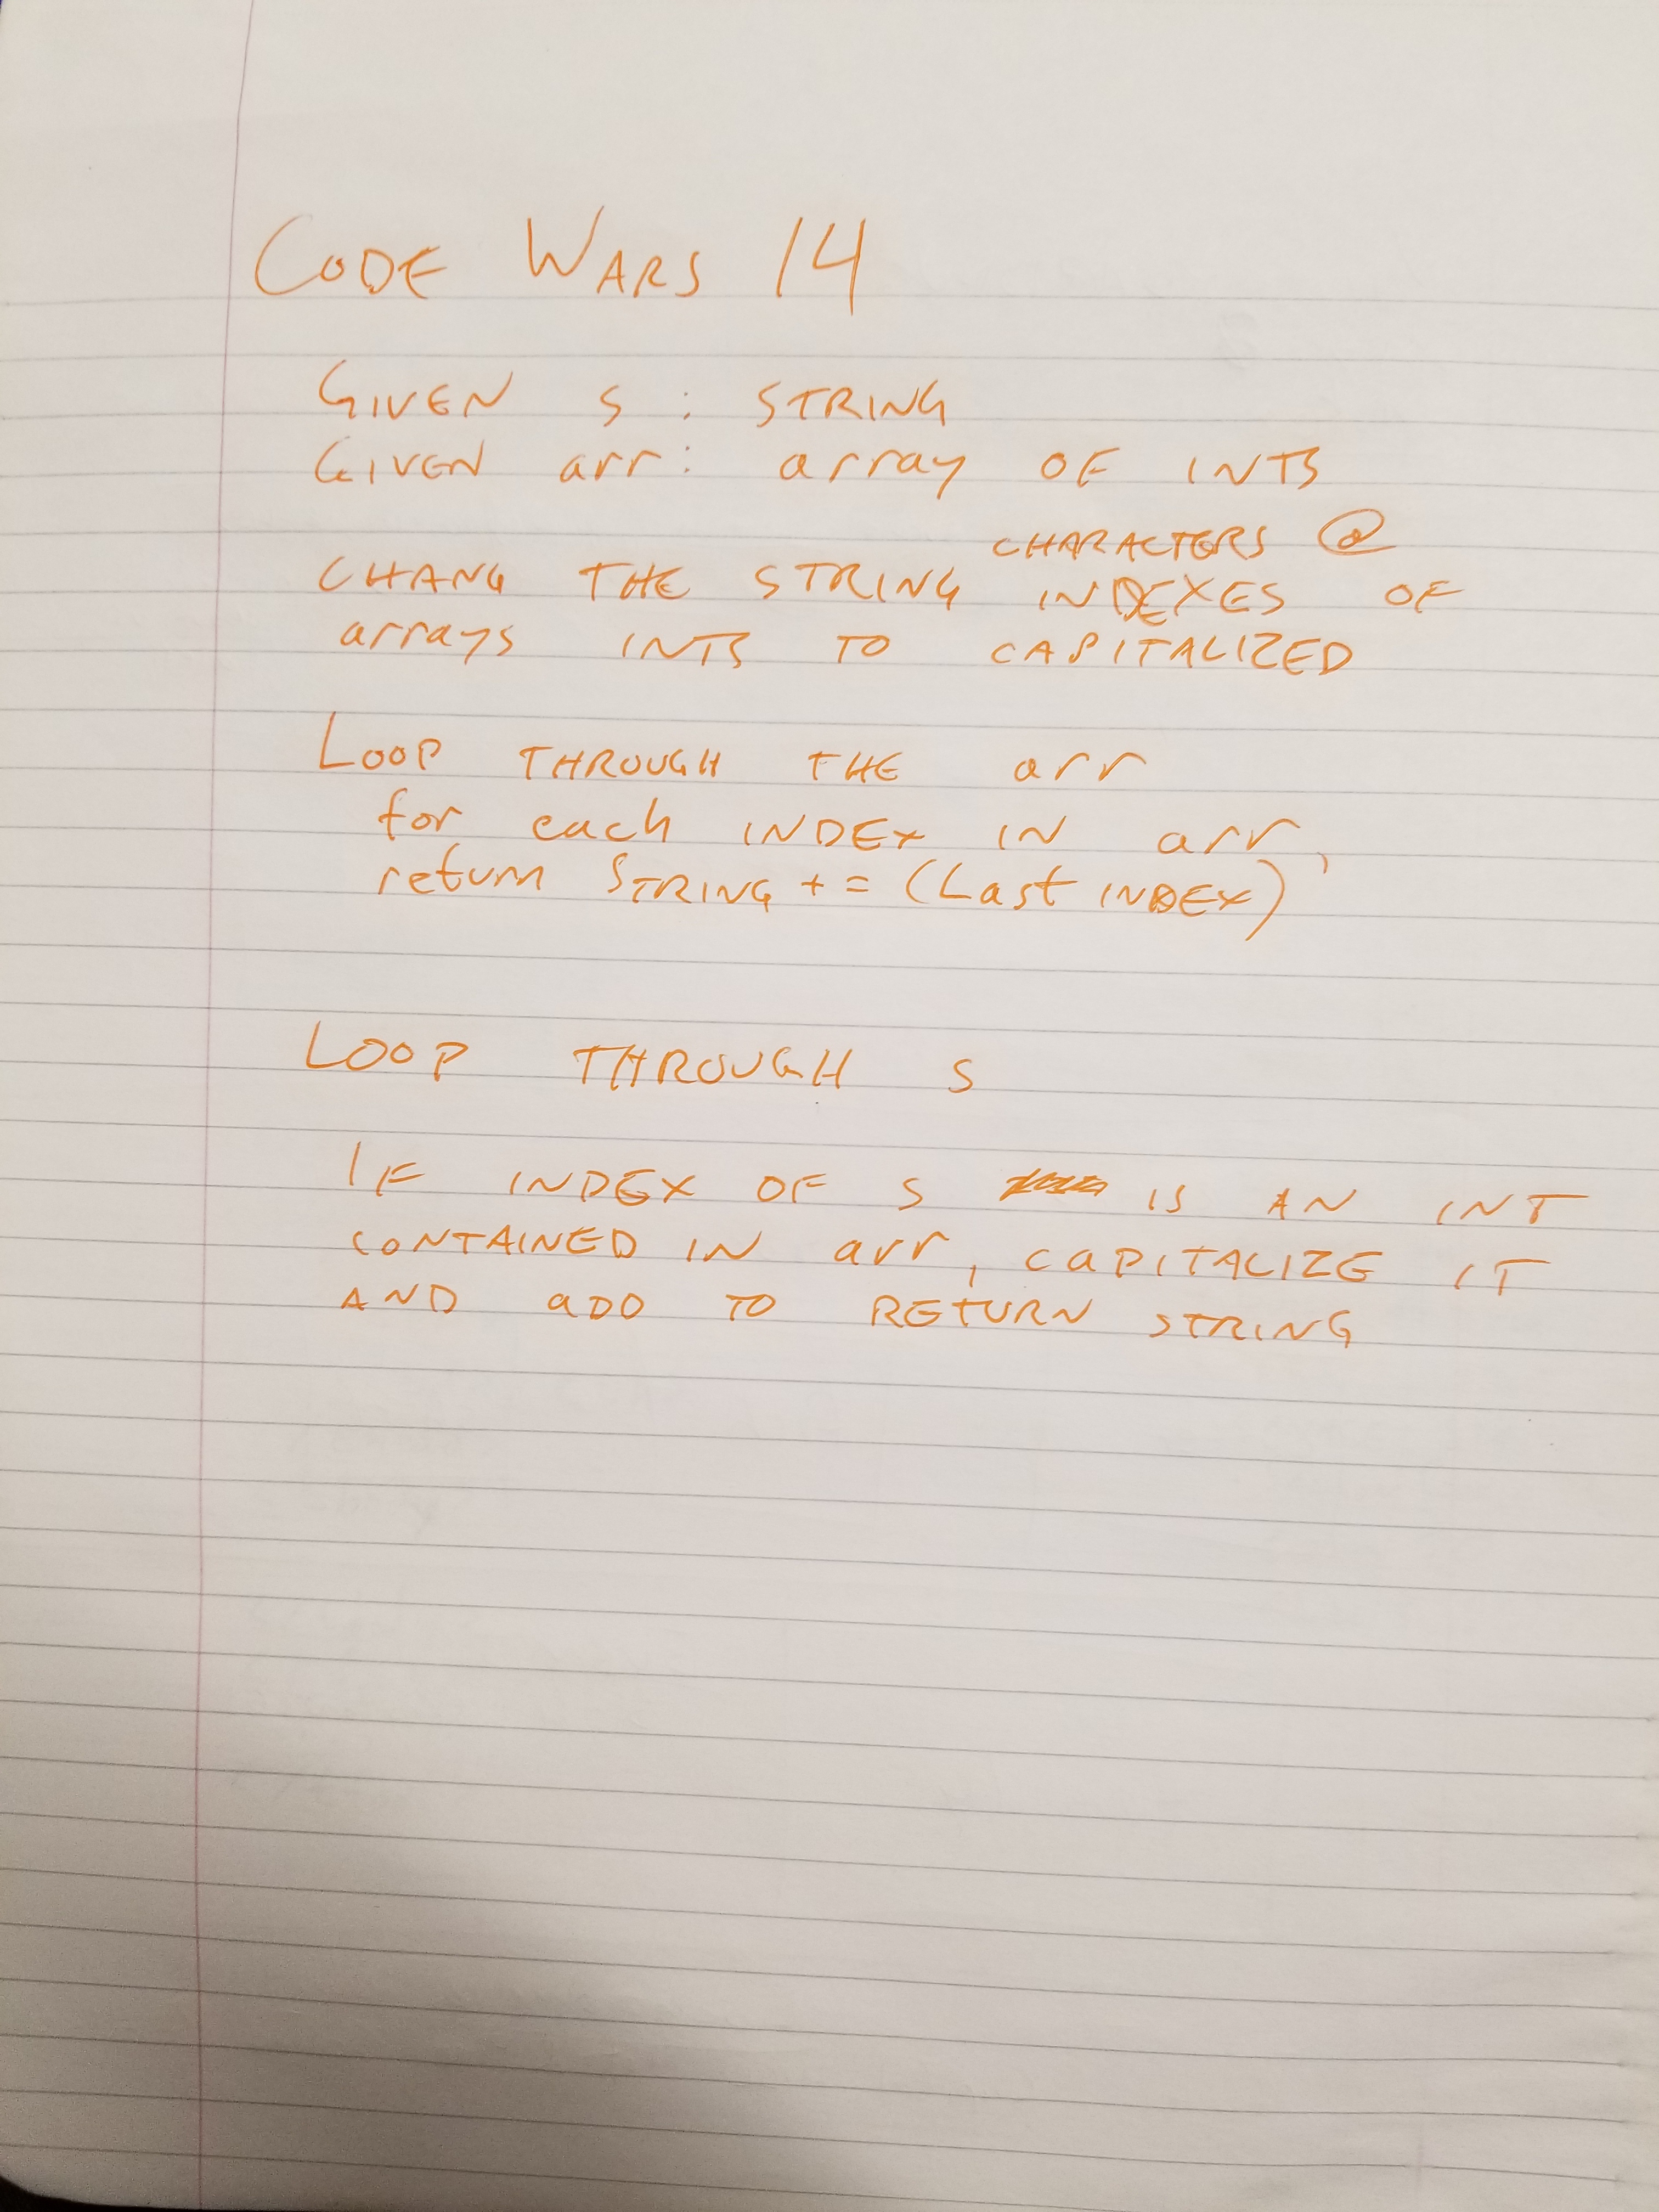 CODE WARS 14
GIVEN s : STRING
GIVEN arr: array OF INTS
CHARACTERS @
CHANG THE STRING INDEXES OF
arrays INTS TO CAPITALIZED
LOOP THROUGH THE arr
for each INDEX IN arr,
return STRING += (Last INDEX)
LOOP THROUGH S
IF INDEX OF S IS AN INT
CONTAINED IN arr, CaPITALIZE IT
AND aDD TO RETURN STRING